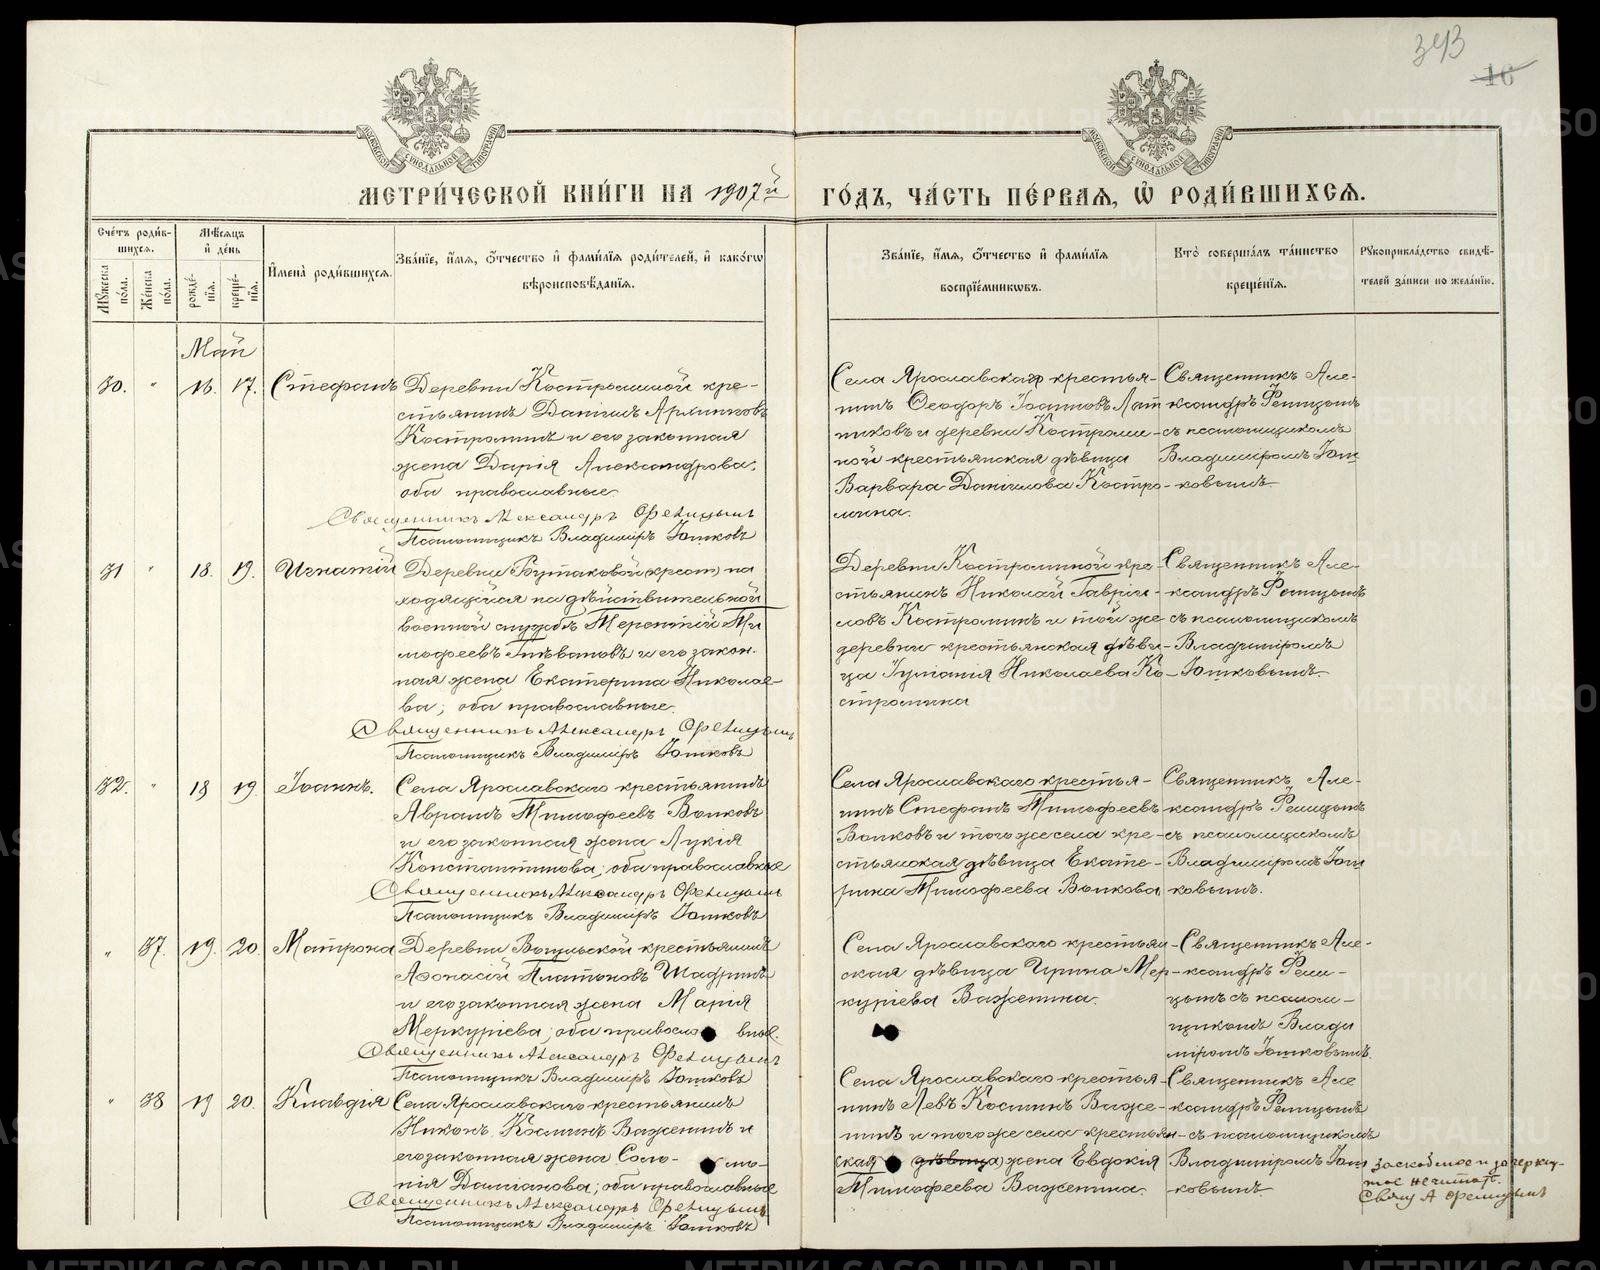 343
16
МЕТРИ́ЧЕСКОЙ КНИ́ГИ НА 1907й
ГО́ДЪ, ЧА́СТЬ ПЕ́РВАЯ, Ѽ РОДИ́ВШИХСЯ.
Сче́тъ роди́в-
шихся.
Мужеска по́ла.
Же́нска по́ла.
Мѣ́сяцъ
и҆ де́нь
рожде́-нїя.
креще́-нїя.
И҆мена̀ роди́вшихся.
Зва́нїе, и҆́мя, ѻ҆́тчество и҆ фами́лїя роди́телей, и҆ како́гѡ
вѣроисповѣ́данїя.
Зва́нїе, и҆́мя, ѻ҆́тчество и҆ фами́лїя
воспрїе́мникѡвъ.
Кто̀ соверша́лъ та́инство
креще́нїя.
Рукоприкла́дство свидѣ́-
телей за́писи по жела́нїю.
Май
30. " 16. 17. Стефанъ
Деревни Костроминой кре-
стьянинъ Данiилъ
Костроминъ и его законная
жена Дарiя Александрова,
оба православные.
Священникъ Александръ
Псаломщикъ Владимiръ
Села Ярославскаго крестья-
нинъ Ѳеодоръ Iоанновъ Лат
никовъ и деревни Костроми-
ной крестьянская дѣвица
Варвара Данiилова Костро-
мина.
Священникъ Але-
ксандръ
съ псаломщикомъ
Владимiромъ
ковымъ
31 " 18. 19. Игнатiй
Деревни (крест) на
ходящiйся на дѣйствительной
военной службѣ Терентiй Ти
мофеевъ и его закон-
ная жена Екатерина Николае-
ва; оба православные.
Священникъ Александръ
Псаломщикъ Владимiръ
Деревни Костроминой кре-
стьянинъ Николай Гаврiи-
ловъ Костроминъ и той же
деревни крестьянская дѣви-
ца Николаева Ко-
стромина
Священникъ Але-
ксандръ
съ псаломщикомъ
Владимiромъ
32. " 18 19. Iоаннъ.
Села Ярославскаго крестьянинъ
Аврамъ Тимофеевъ Волковъ
и его законная жена Лукiя
Константинова; оба православные
Священникъ Александръ
Псаломщикъ Владимiръ
Села Ярославскаго крестья-
нинъ Стефанъ Тимофеевъ
Волковъ и того же села кре-
стьянская дѣвица Екате-
рина Тимофеева Волкова
Священникъ Але-
ксандръ
съ псаломщикомъ
Владимiромъ
ковымъ.
" 37. 19. 20. Матрона
Деревни крестьянинъ
Аѳонасiй Платоновъ Шадринъ
и его законная жена Марiя
Меркурiева; оба правосла вные.
Священникъ Александръ
Псаломщикъ Владимiръ
Села Ярославскаго крестьян-
ская дѣвица Ирина Мер-
курiева Важенина.
Священникъ Але-
ксандръ
съ псалом-
щикомъ Влади
мiромъ
" 38 19 20. Клавдiя
Села Ярославскаго крестьянинъ
Никонъ Косминъ Важенинъ и
его законная жена Соло- мо-
нiя Дамiанова; оба православные
Священникъ Александръ
Псаломщикъ Владимiръ
Села Ярославскаго крестья-
нинъ Левъ Косминъ Важе-
нинъ и того же села крестьян-
ская (дѣвица) жена Евдокiя
Тимофеева Важенина.
Священникъ Але
ксандръ
съ псаломщикомъ
Владимiромъ
ковымъ
Заскобленое и зачеркну-
тое не читать.
Свящ А
METRIKI.GASO-URAL.RU